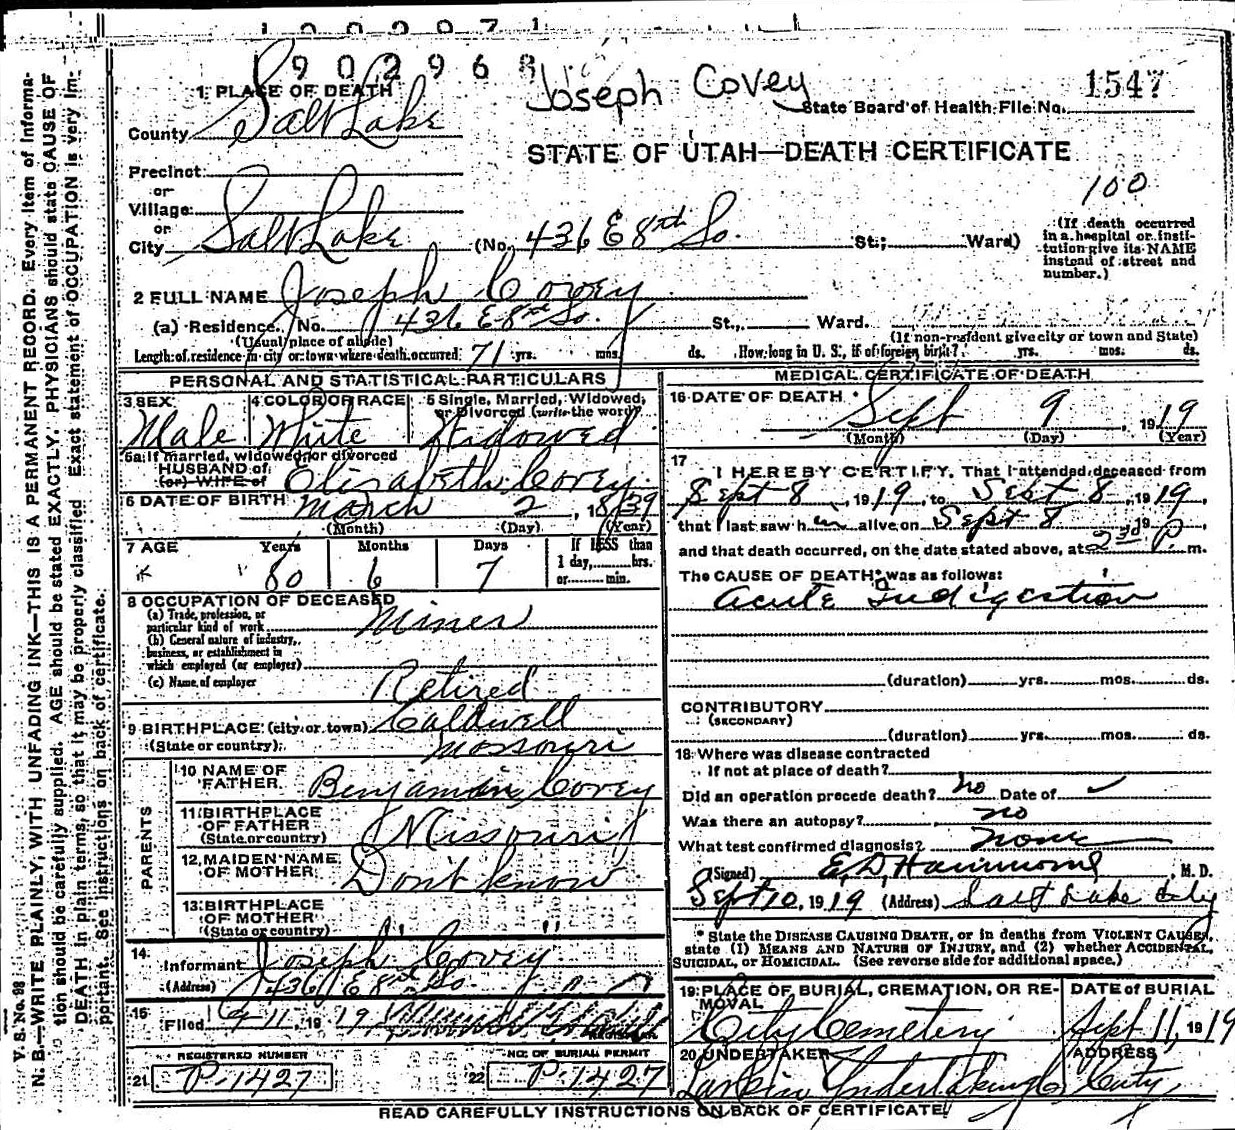 902968
Joseph Covey
1547
1 PLACE OF DEATH
State Board of Health File No.
County Salt Lake
STATE OF UTAH—DEATH CERTIFICATE
Precinct
or
100
Village
or
City Salt Lake (No. 436 E 8th So. St.; Ward)
(If death occurred in a hospital or institution give its NAME instead of street and number.)
2 FULL NAME Joseph Covey
(a) Residence. No. 436 E 8th So. St., Ward.
(Usual place of abode) (If non-resident give city or town and State)
Length of residence in city or town where death occurred 71 yrs. mos. ds. How long in U. S., if of foreign birth? yrs. mos. ds.
PERSONAL AND STATISTICAL PARTICULARS
3 SEX 4 COLOR OR RACE 5 Single, Married, Widowed, or Divorced (write the word)
Male White Widowed
5a If married, widowed or divorced
HUSBAND of
(or) WIFE of Elizabeth Covey
6 DATE OF BIRTH March 2, 1839
(Month) (Day) (Year)
7 AGE Years Months Days If LESS than
1 day, hrs.
80 6 7 or min.
8 OCCUPATION OF DECEASED
(a) Trade, profession, or
particular kind of work Miner
(b) General nature of industry,
business, or establishment in
which employed (or employer)
(c) Name of employer Retired
9 BIRTHPLACE (city or town) Caldwell
(State or country) Missouri
PARENTS
10 NAME OF
FATHER Benjamin Covey
11 BIRTHPLACE
OF FATHER Missouri
(State or country)
12 MAIDEN NAME
OF MOTHER Don't know
13 BIRTHPLACE
OF MOTHER " "
(State or country)
14
Informant Joseph Covey
(Address) 436 E 8th So.
15
Filed 9-11, 1919
REGISTRAR
REGISTERED NUMBER NO. OF BURIAL PERMIT
21 P-1427 22 P-1427
MEDICAL CERTIFICATE OF DEATH
16 DATE OF DEATH Sept 9, 1919
(Month) (Day) (Year)
17
I HEREBY CERTIFY, That I attended deceased from
Sept 8, 1919, to Sept 8, 1919,
that I last saw him alive on Sept 8, 19,
and that death occurred, on the date stated above, at P. m.
The CAUSE OF DEATH* was as follows:
Acute Indigestion
(duration) yrs. mos. ds.
CONTRIBUTORY
(SECONDARY)
(duration) yrs. mos. ds.
18 Where was disease contracted
If not at place of death?
Did an operation precede death? no Date of
Was there an autopsy? no
What test confirmed diagnosis? none
(Signed) E. D. Hammond, M. D.
Sept 10, 1919 (Address) Salt Lake City
* State the DISEASE CAUSING DEATH, or in deaths from VIOLENT CAUSES,
state (1) MEANS AND NATURE OF INJURY, and (2) whether ACCIDENTAL,
SUICIDAL, or HOMICIDAL. (See reverse side for additional space.)
19 PLACE OF BURIAL, CREMATION, OR RE-
MOVAL
DATE of BURIAL
City Cemetery Sept 11, 1919
20 UNDERTAKER ADDRESS
Larkin Undertaking Co City
READ CAREFULLY INSTRUCTIONS ON BACK OF CERTIFICATE
V. S. No. 98
N. B.—WRITE PLAINLY, WITH UNFADING INK—THIS IS A PERMANENT RECORD. Every item of informa-
tion should be carefully supplied. AGE should be stated EXACTLY. PHYSICIANS should state CAUSE OF
DEATH in plain terms, so that it may be properly classified. Exact statement of OCCUPATION is very im-
portant. See instructions on back of certificate.